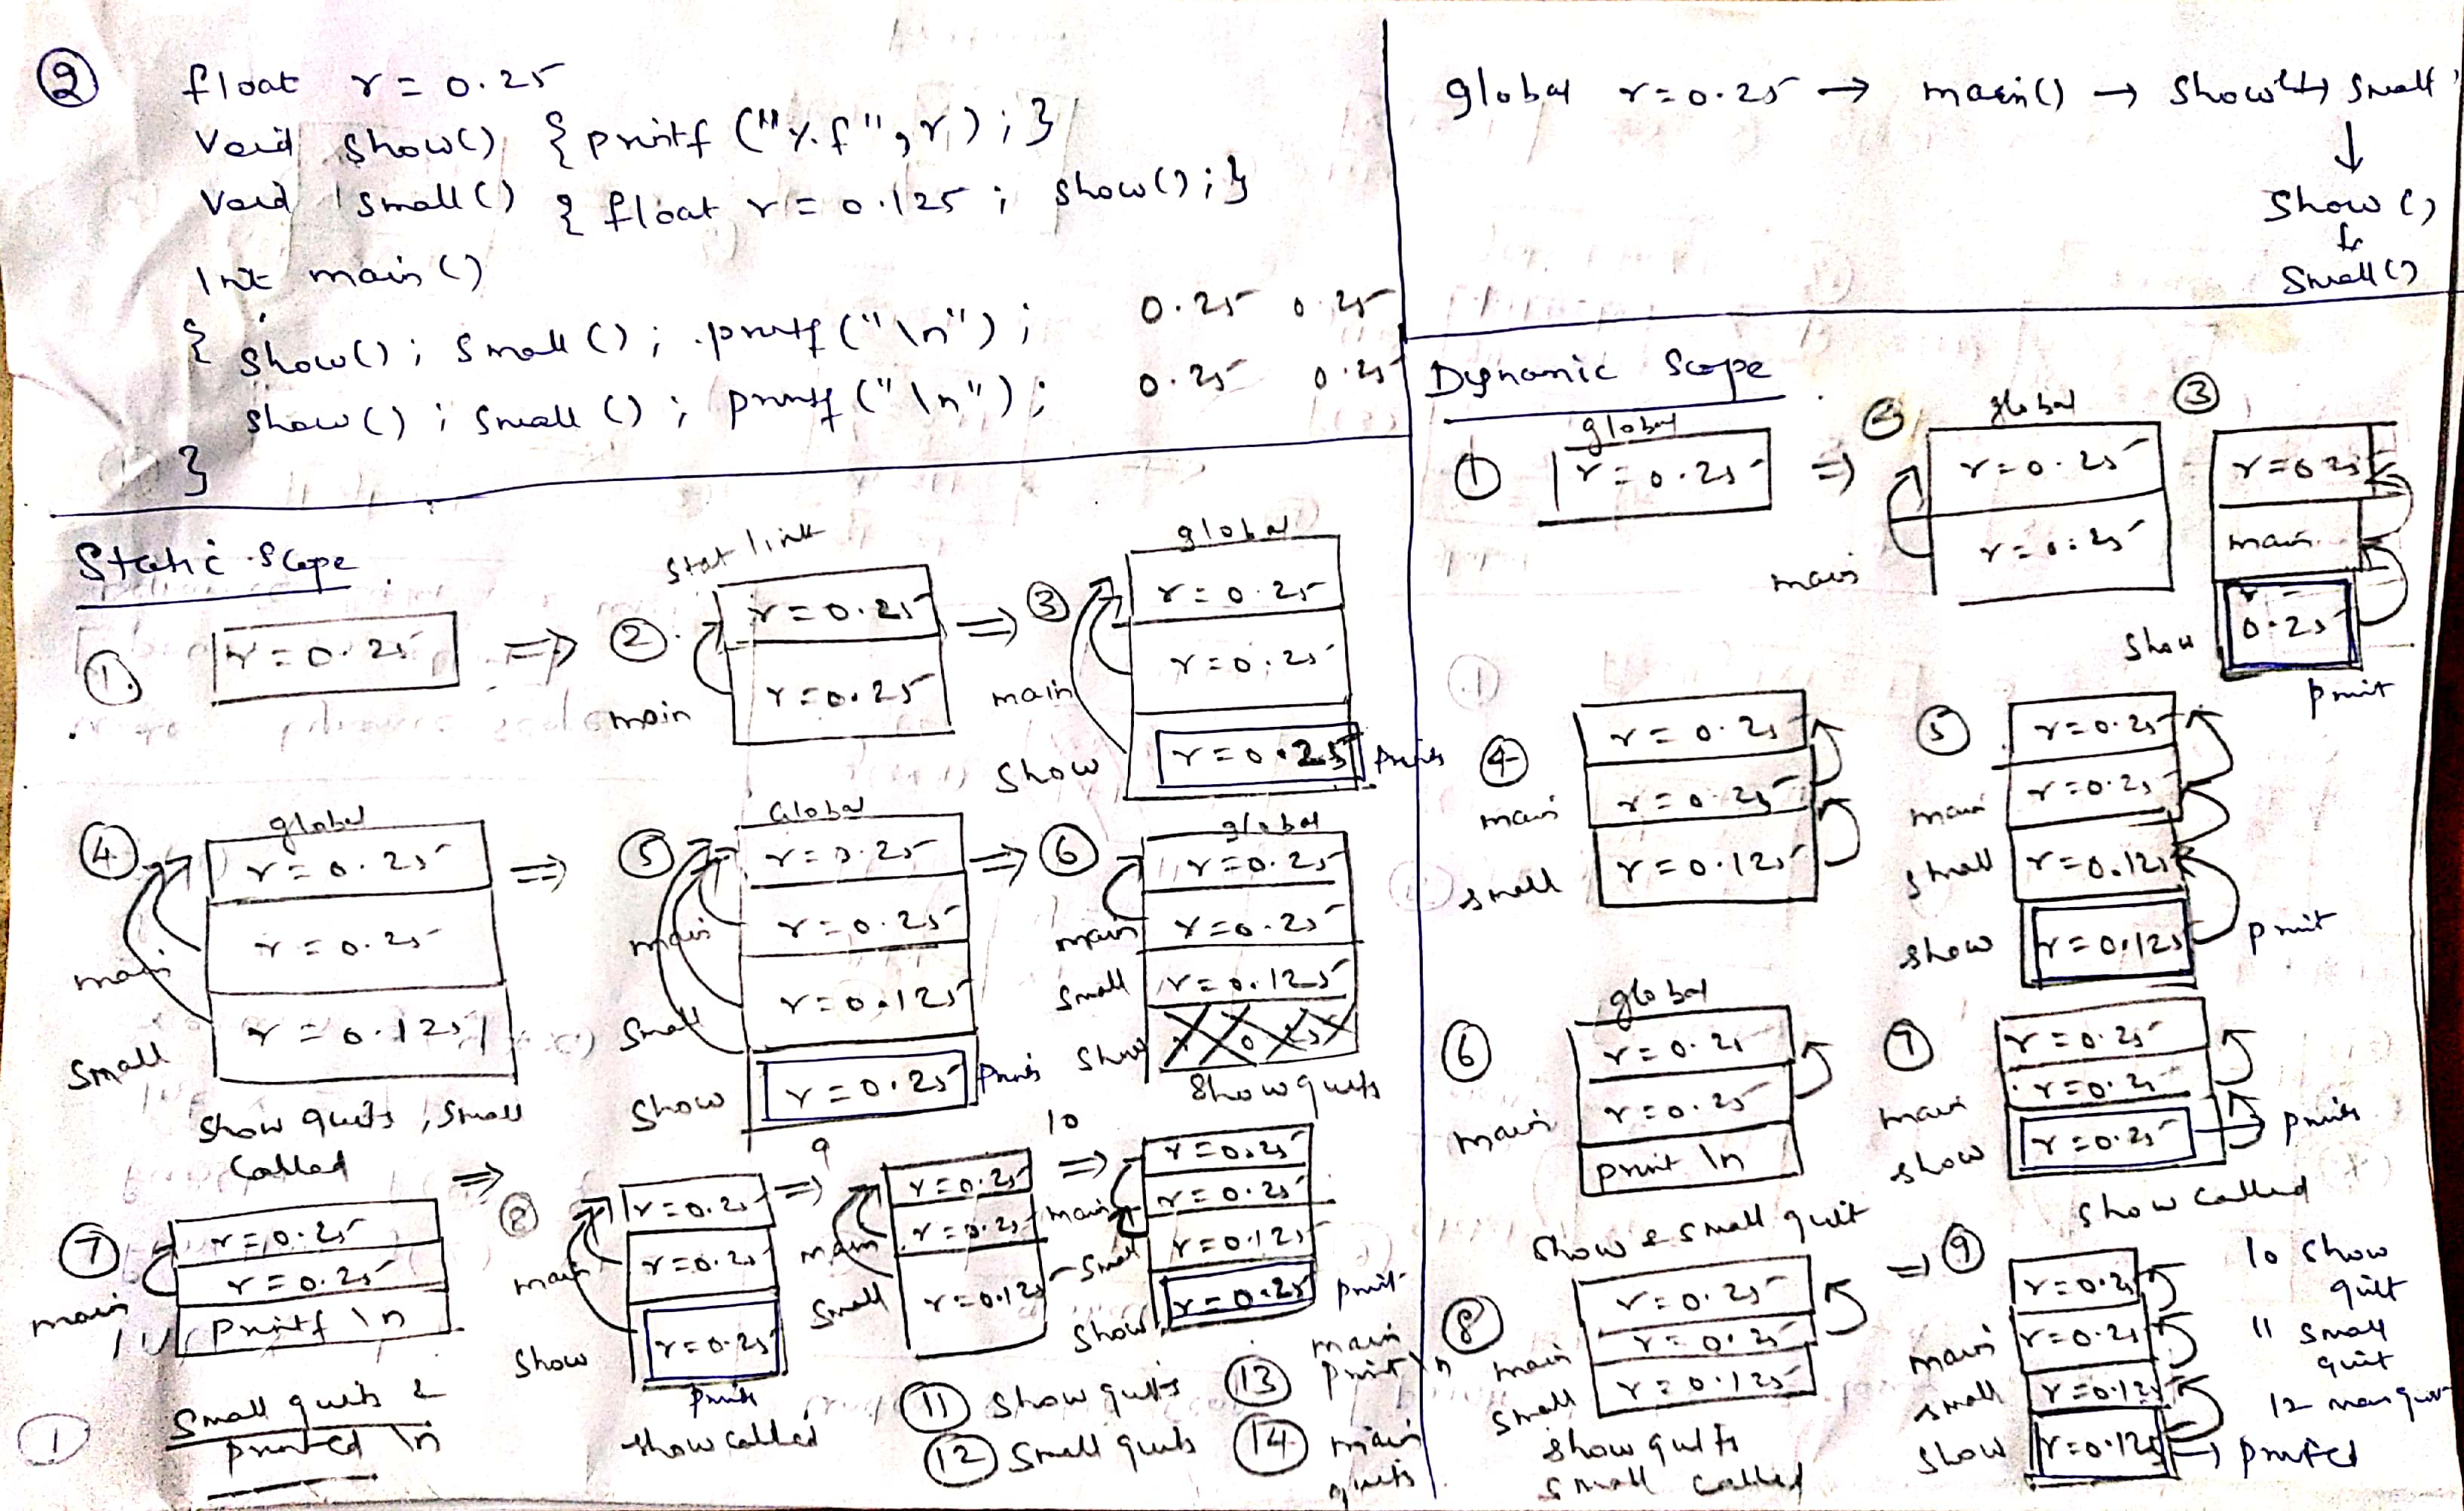 ②
float r = 0.25
Void show() { printf ("%f", r); }
Void small() { float r = 0.125; show(); }
Int main()
{ show(); small(); printf("\n"); 0.25 0.25
show(); small(); printf("\n"); 0.25 0.25
}
global r=0.25 → main() → show() → small
↓
show()
↓
Small()
Static Scope
①
r = 0.25
⇒ ②
stat link
r = 0.25
main
r = 0.25
⇒ ③
global
r = 0.25
main
r = 0.25
show
r = 0.25
prints
④
global
r = 0.25
main
r = 0.25
small
r = 0.125
Show quits, Small
Called
⇒ ⑤
Global
r = 0.25
main
r = 0.25
Small
r = 0.125
Show
r = 0.25
Prints
⇒ ⑥
global
r = 0.25
main
r = 0.25
Small
r = 0.125
Show
Show quits
⑦
r = 0.25
main
r = 0.25
Printf \n
Small quits &
printed \n
⇒ ⑧
r = 0.25
main
r = 0.25
Show
r = 0.25
Prints
show called
⇒ 9
r = 0.25
main
r = 0.25
Small
r = 0.125
10
⇒
r = 0.25
main
r = 0.25
Small
r = 0.125
Show
r = 0.25
print
⑪ Show quits
⑫ Small quits
⑬ main
print \n
⑭ main
quits
Dynamic Scope
①
global
r = 0.25
⇒ ②
global
r = 0.25
main
r = 0.25
③
r = 0.25
main
show
r =
0.25
print
④
r = 0.25
main
r = 0.25
small
r = 0.125
⑤
r = 0.25
main
r = 0.25
small
r = 0.125
show
r = 0.125
print
⑥
global
r = 0.25
main
r = 0.25
print \n
Show & small quit
⑦
r = 0.25
main
r = 0.25
show
r = 0.25
prints
show called
⑧
r = 0.25
main
r = 0.25
small
r = 0.125
show quits
small called
⇒ ⑨
r = 0.25
main
r = 0.25
small
r = 0.125
show
r = 0.125
→ printed
10 show
quit
11 small
quit
12 main quit
①